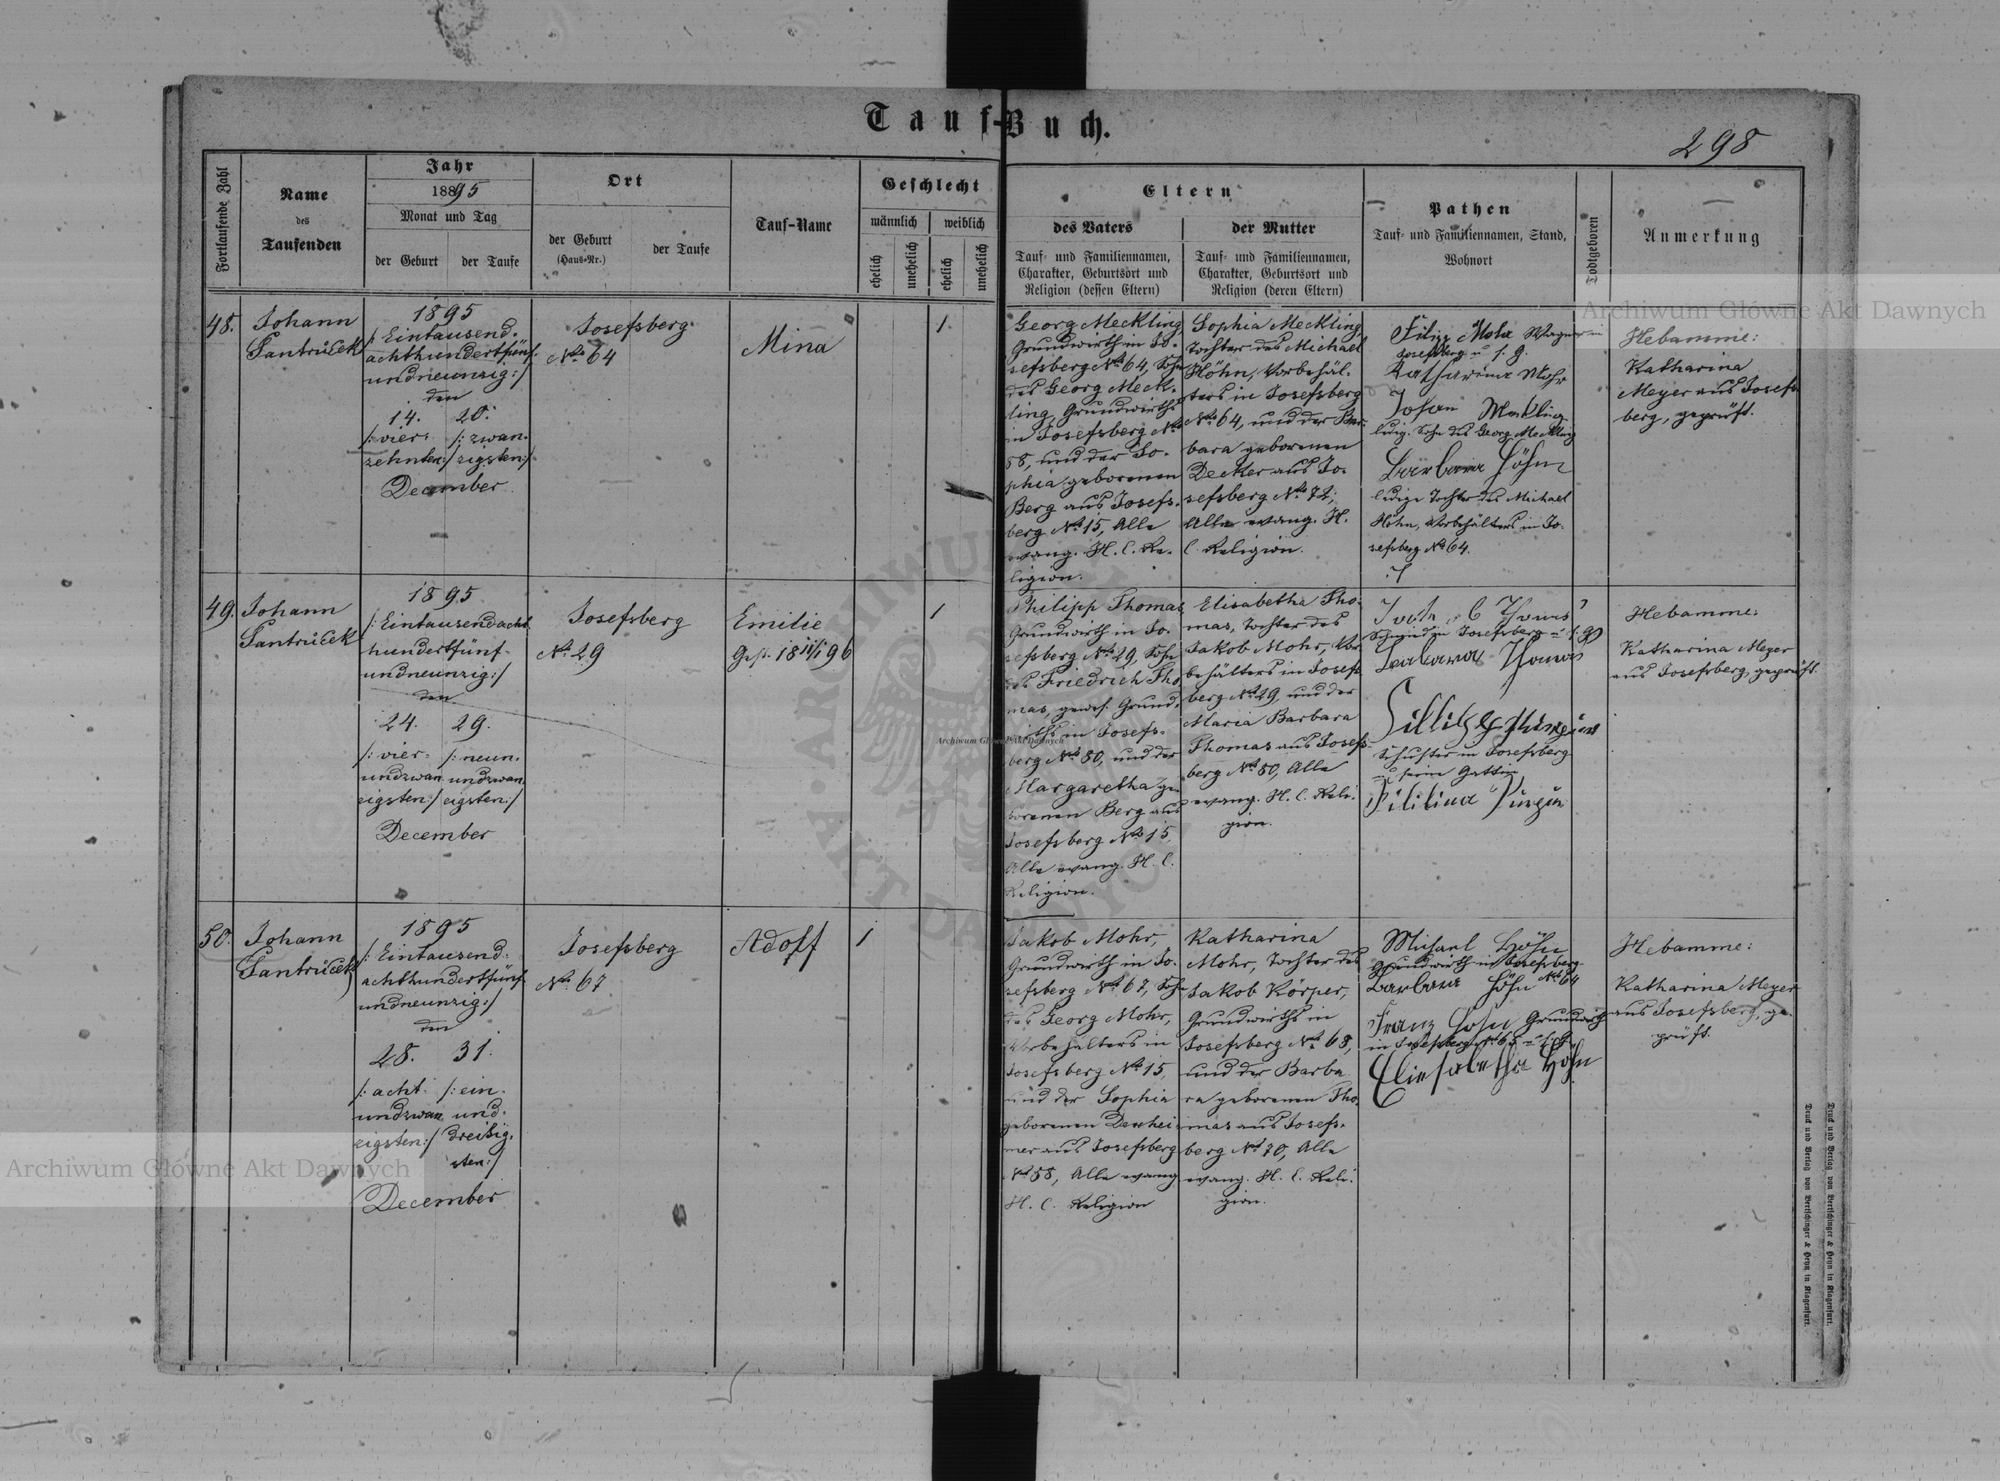 Tauf-Buch.
298
Fortlaufende Zahl
Name
des
Taufenden
Jahr
1895
Monat und Tag
der Geburt
der Taufe
Ort
der Geburt
(Haus-Nr.)
der Taufe
Tauf-Name
Geschlecht
männlich
weiblich
ehelich
unehelich
ehelich
unehelich
Eltern
des Vaters
Tauf- und Familiennamen,
Charakter, Geburtsort und
Religion (dessen Eltern)
der Mutter
Tauf- und Familiennamen,
Charakter, Geburtsort und
Religion (deren Eltern)
Pathen
Tauf- und Familiennamen, Stand,
Wohnort
Todtgeboren
Anmerkung
48.
Johann
Santrůček
1895
/: Eintausend-
achthundertfünf-
undneunzig :/
den
14. 20.
/: vier- /: zwan-
zehnten :/ zigsten :/
December
Josefsberg
No 64
Mina
1
Georg Meckling,
Grundwirth in Jo-
sefsberg No 64, Sohn
des Georg Meck-
ling, Grundwirths
in Josefsberg No
58, und der So-
phia geborenen
Berg aus Josefs-
berg No 15, Alle
evang. H. C. Re-
ligion.
Sophia Meckling,
Tochter des Michael
Höhn, Vorbehäl-
ters in Josefsberg
No 64, und der Bar-
bara geborenen
Decker aus Jo-
sefsberg No 72,
Alle evang. H.
C. Religion.
Mohr Wagner in
Josefsberg u. s. g.
Katharina Mohr
Johan Mekling
ledig. Sohn des Georg Meckling
Barbara Höhn
ledige Tochter des Michael
Höhn, Vorbehälters in Jo-
sefsberg No 64.
Hebamme:
Katharina
Meyer aus Josefs-
berg, geprüft.
49.
Johann
Santrůček
1895
/: Eintausendacht-
hundertfünf-
undneunzig :/
den
24. 29.
/: vier- /: neun-
undzwan- undzwan-
zigsten :/ zigsten :/
December
Josefsberg
No 29
Emilie
Gest. 18 11/1 96
1
Philipp Thomas,
Grundwirth in Jo-
sefsberg No 29, Sohn
des Friedrich Tho-
mas, gewes. Grund-
wirths in Josefs-
berg No 80, und der
Margaretha ge-
borenen Berg aus
Josefsberg No 15,
Alle evang. H. C.
Religion.
Elisabetha Tho-
mas, Tochter des
Jakob Mohr, Vor-
behälters in Josefs-
berg No 29, und der
Maria Barbara
Thomas aus Josefs-
berg No 80, Alle
evang. H. C. Reli-
gion.
Schmied in Josefsberg u. s. g.
Barbara Thomas
Schuster in Josefsberg
u. seine Gattin
Hebamme:
Katharina Meyer
aus Josefsberg, geprüft.
50.
Johann
Santrůček
1895
/: Eintausend-
achthundertfünf-
undneunzig :/
den
28. 31.
/: acht- /: ein-
undzwan- und-
zigsten :/ dreißig-
sten :/
December
Josefsberg
No 67
Adolf
1
Jakob Mohr,
Grundwirth in Jo-
sefsberg No 67, Sohn
des Georg Mohr,
Vorbehälters in
Josefsberg No 15,
und der Sophia
geborenen Denhei-
mer aus Josefsberg
No 58, Alle evang.
H. C. Religion
Katharina
Mohr, Tochter des
Jakob Körper,
Grundwirths in
Josefsberg No 68,
und der Barba-
ra geborenen Tho-
mas aus Josefs-
berg No 70, Alle
evang. H. C. Reli-
gion.
Michael Höhn
Grundwirth in Josefsberg
Barbara Höhn No 64
Franz Höhn Grundwirth
in Josefsberg No 65 u. s. g.
Eliesabetha Höhn
Hebamme:
Katharina Meyer
aus Josefsberg, ge-
prüft.
Druck und Verlag von Bertschinger & Heyn in Klagenfurt.
Druck und Verlag von Bertschinger & Heyn in Klagenfurt.
Archiwum Główne Akt Dawnych
Archiwum Główne Akt Dawnych
Archiwum Główne Akt Dawnych